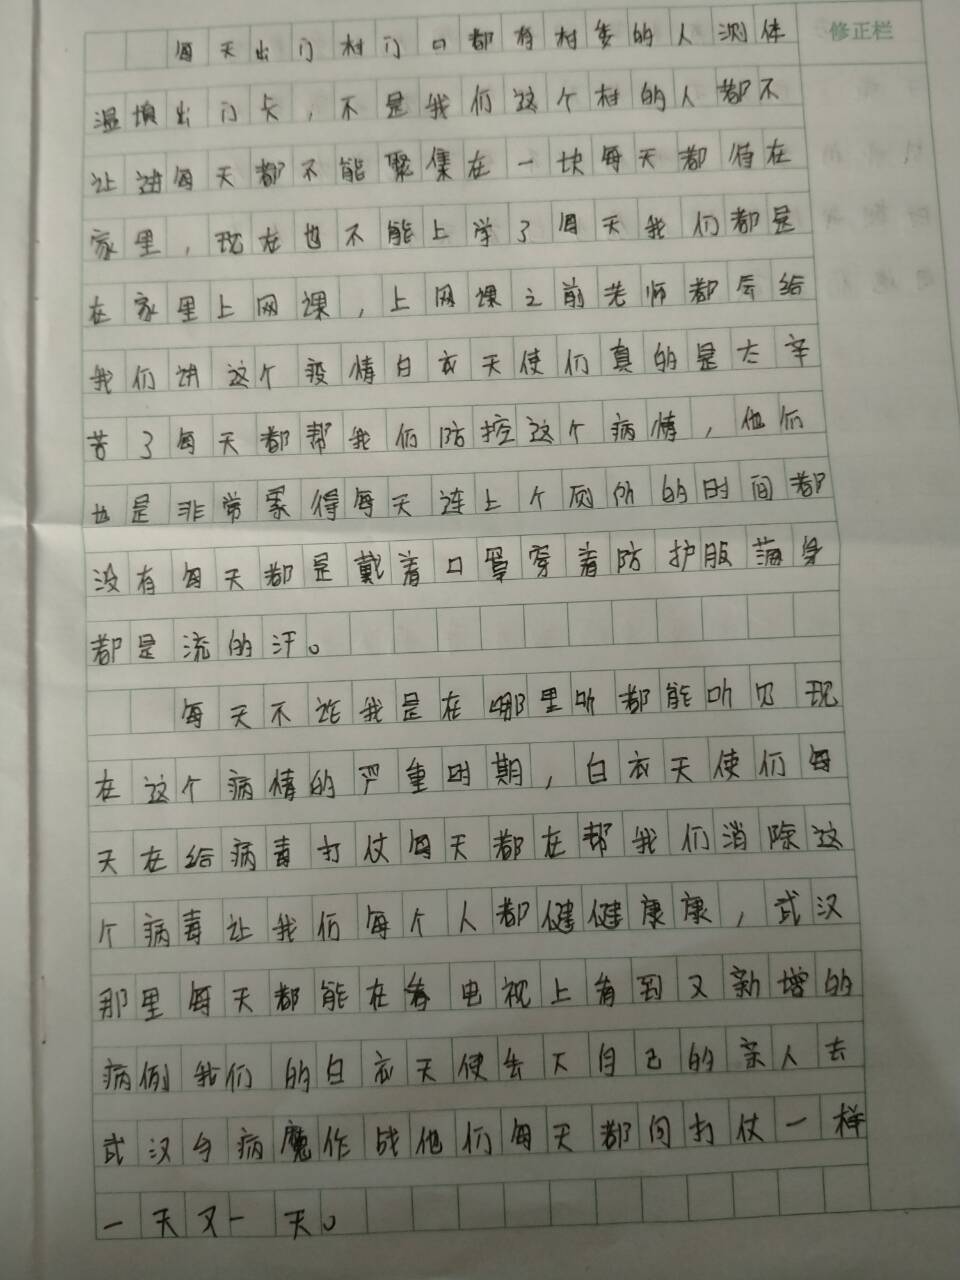 修正栏
每天出门村门口都有村委的人测体
温填出门卡，不是我们这个村的人都不
让进每天都不能聚集在一块每天都待在
家里，现在也不能上学了每天我们都是
在家里上网课，上网课之前老师都会给
我们讲这个疫情白衣天使们真的是太辛
苦了每天都帮我们防控这个病情，他们
也是非常累得每天连上个厕所的时间都
没有每天都是戴着口罩穿着防护服满身
都是流的汗。
每天不论我是在哪里听都能听见现
在这个病情的严重时期，白衣天使们每
天在给病毒打仗每天都在帮我们消除这
个病毒让我们每个人都健健康康，武汉
那里每天都能在看电视上看到又新增的
病例我们的白衣天使丢下自己的亲人去
武汉与病魔作战他们每天都向打仗一样
一天又一天。